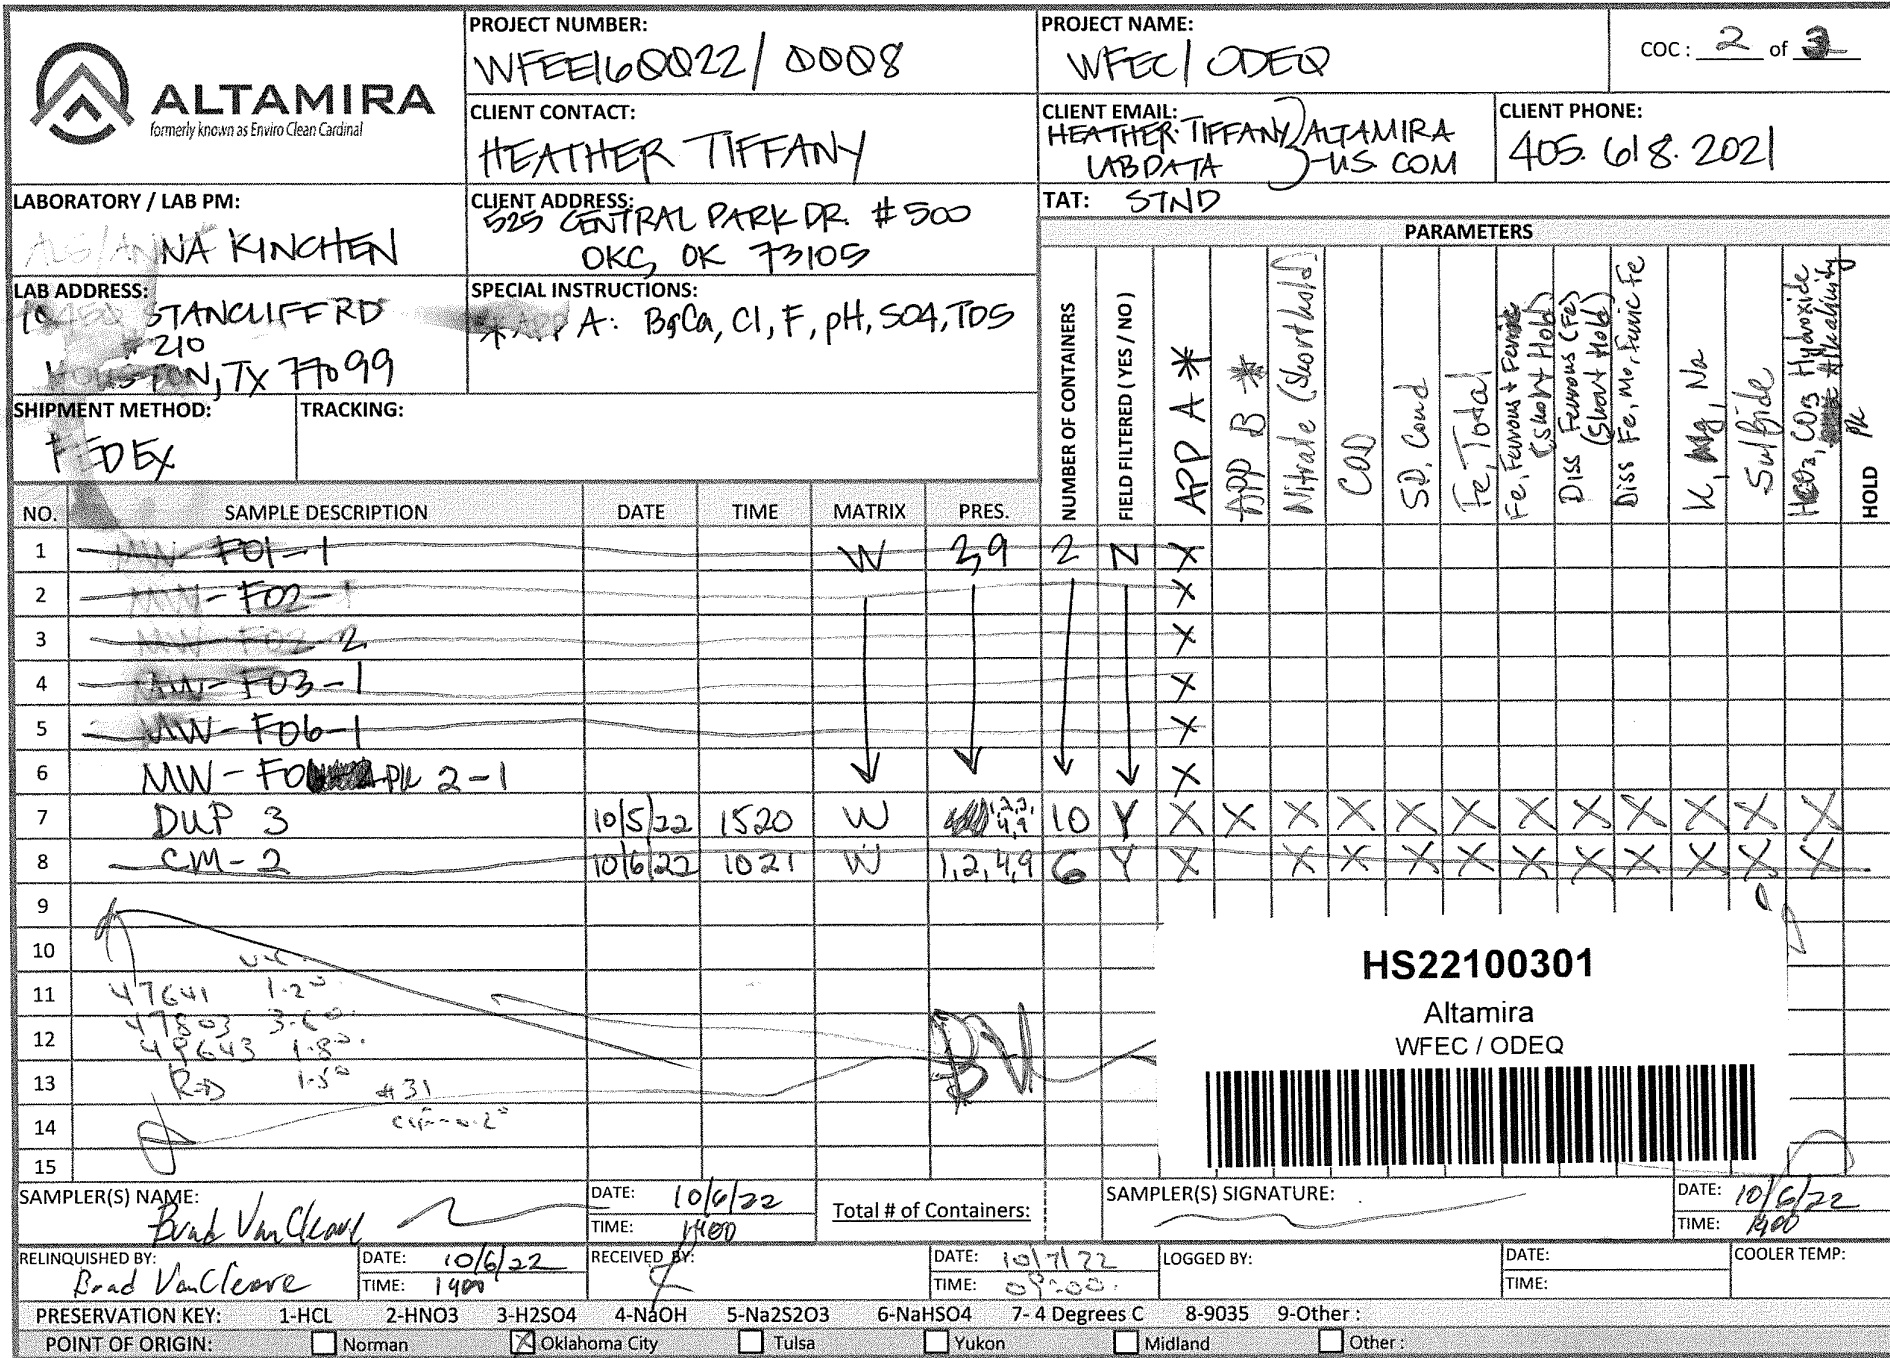 ALTAMIRA
formerly known as Enviro Clean Cardinal
PROJECT NUMBER:
WFEE160022/0008
PROJECT NAME:
WFEC/ODEQ
COC: 2 of 3
CLIENT CONTACT:
HEATHER TIFFANY
CLIENT EMAIL:
HEATHER.TIFFANY } ALTAMIRA
LABDATA -US.COM
CLIENT PHONE:
405.618.2021
LABORATORY / LAB PM:
ALS/ANNA KINCHEN
CLIENT ADDRESS:
525 CENTRAL PARK DR. #500
OKC, OK 73105
TAT: STND
PARAMETERS
LAB ADDRESS:
10450 STANCLIFF RD
#210
HOUSTON, TX 77099
SPECIAL INSTRUCTIONS:
*APP A: B,Ca, Cl, F, pH, SO4, TDS
SHIPMENT METHOD:
FEDEX
TRACKING:
NO. SAMPLE DESCRIPTION DATE TIME MATRIX PRES.
NUMBER OF CONTAINERS
FIELD FILTERED ( YES / NO )
APP A *
APP B *
Nitrate (Short hold)
COD
SP. Cond
Fe, Total
Fe, Ferrous + Ferric
(Short Hold)
Diss Ferrous (Fe)
(Short Hold)
Diss Fe, Mo, Ferric Fe
K, Mg, Na
Sulfide
HCO3, CO3 Hydroxide
Alkalinity
HOLD
1 MW-F01-1 W 3,9 2 N X
2 MW-F02-1 X
3 MW-F02-2 X
4 MW-F03-1 X
5 MW-F06-1 X
6 MW-F0 2-1 X
7 DUP 3 10/5/22 1520 W 1,2,3, 4,9 10 Y X X X X X X X X X X X X
8 CM-2 10/6/22 1021 W 1,2,4,9 6 Y X X X X X X X X X X X
9
10
11 47641 1.2°
47803 3.6°
12
49643 1.8°
13 1.5° #31
14
15
BV
HS22100301
Altamira
WFEC / ODEQ
SAMPLER(S) NAME:
Brad VanCleave
DATE: 10/6/22
TIME: 1400
Total # of Containers:
SAMPLER(S) SIGNATURE:
DATE: 10/6/22
TIME: 1400
RELINQUISHED BY:
Brad VanCleave
DATE: 10/6/22
TIME: 1400
RECEIVED BY:
DATE: 10/7/22
TIME: 09:00
LOGGED BY:
DATE:
TIME:
COOLER TEMP:
PRESERVATION KEY: 1-HCL 2-HNO3 3-H2SO4 4-NaOH 5-Na2S2O3 6-NaHSO4 7- 4 Degrees C 8-9035 9-Other :
POINT OF ORIGIN: Norman X Oklahoma City Tulsa Yukon Midland Other :